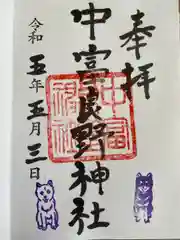 奉拝
中富良野神社
令和五年五月三日